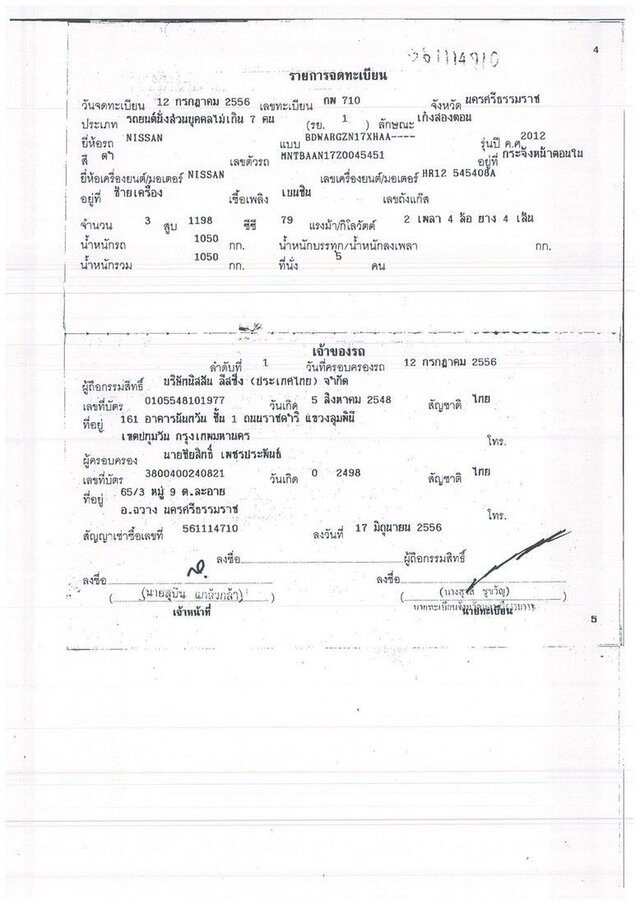 561114710
4
รายการจดทะเบียน
วันจดทะเบียน 12 กรกฎาคม 2556 เลขทะเบียน กพ 710 จังหวัด นครศรีธรรมราช
ประเภท รถยนต์นั่งส่วนบุคคลไม่เกิน 7 คน (รย. 1 ) ลักษณะ เก๋งสองตอน
ยี่ห้อรถ NISSAN แบบ BDWARGZN17XHAA---- รุ่นปี ค.ศ 2012
สี ดำ เลขตัวรถ MNTBAAN17Z0045451 อยู่ที่ กระจังหน้าตอนใน
ยี่ห้อเครื่องยนต์/มอเตอร์ NISSAN เลขเครื่องยนต์/มอเตอร์ HR12 545408A
อยู่ที่ ซ้ายเครื่อง เชื้อเพลิง เบนซิน เลขถังแก๊ส
จำนวน 3 สูบ 1198 ซีซี 79 แรงม้า/กิโลวัตต์ 2 เพลา 4 ล้อ ยาง 4 เส้น
น้ำหนักรถ 1050 กก. น้ำหนักบรรทุก/น้ำหนักลงเพลา กก.
น้ำหนักรวม 1050 กก. ที่นั่ง 5 คน
เจ้าของรถ
ลำดับที่ 1 วันที่ครอบครองรถ 12 กรกฎาคม 2556
ผู้ถือกรรมสิทธิ์ บริษัทนิสสัน ลีสซิ่ง (ประเทศไทย) จำกัด
เลขที่บัตร 0105548101977 วันเกิด 5 สิงหาคม 2548 สัญชาติ ไทย
ที่อยู่ 161 อาคารนันทวัน ชั้น 1 ถนนราชดำริ แขวงลุมพินี
เขตปทุมวัน กรุงเทพมหานคร โทร.
ผู้ครอบครอง นายชัยสิทธิ์ เพชรประพันธ์
เลขที่บัตร 3800400240821 วันเกิด 0 2498 สัญชาติ ไทย
ที่อยู่ 65/3 หมู่ 9 ต.ละอาย
อ.ฉวาง นครศรีธรรมราช โทร.
สัญญาเช่าซื้อเลขที่ 561114710 ลงวันที่ 17 มิถุนายน 2556
ลงชื่อ ผู้ถือกรรมสิทธิ์
ลงชื่อ ลงชื่อ
(นายสุบิน แก้วกล้า)
เจ้าหน้าที่ นายทะเบียน
5